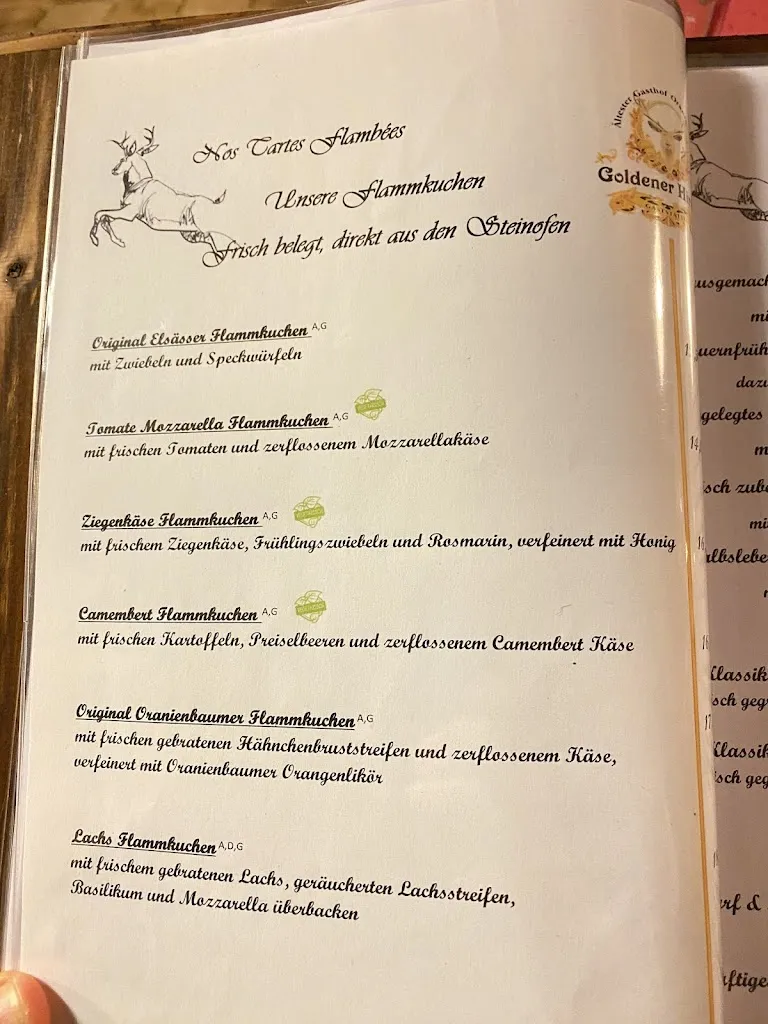 Nos Tartes Flambées
Unsere Flammkuchen
frisch belegt, direkt aus den Steinofen
Ältester Gasthof
Goldener
Original Elsässer Flammkuchen A,G
mit Zwiebeln und Speckwürfeln
Tomate Mozzarella Flammkuchen A,G
mit frischen Tomaten und zerflossenem Mozzarellakäse
Ziegenkäse Flammkuchen A,G
mit frischem Ziegenkäse, Frühlingszwiebeln und Rosmarin, verfeinert mit Honig
Camembert Flammkuchen A,G
mit frischen Kartoffeln, Preiselbeeren und zerflossenem Camembert Käse
Original Oranienbaumer Flammkuchen A,G
mit frischen gebratenen Hähnchenbruststreifen und zerflossenem Käse,
verfeinert mit Oranienbaumer Orangenlikör
Lachs Flammkuchen A,D,G
mit frischem gebratenen Lachs, geräucherten Lachsstreifen,
Basilikum und Mozzarella überbacken